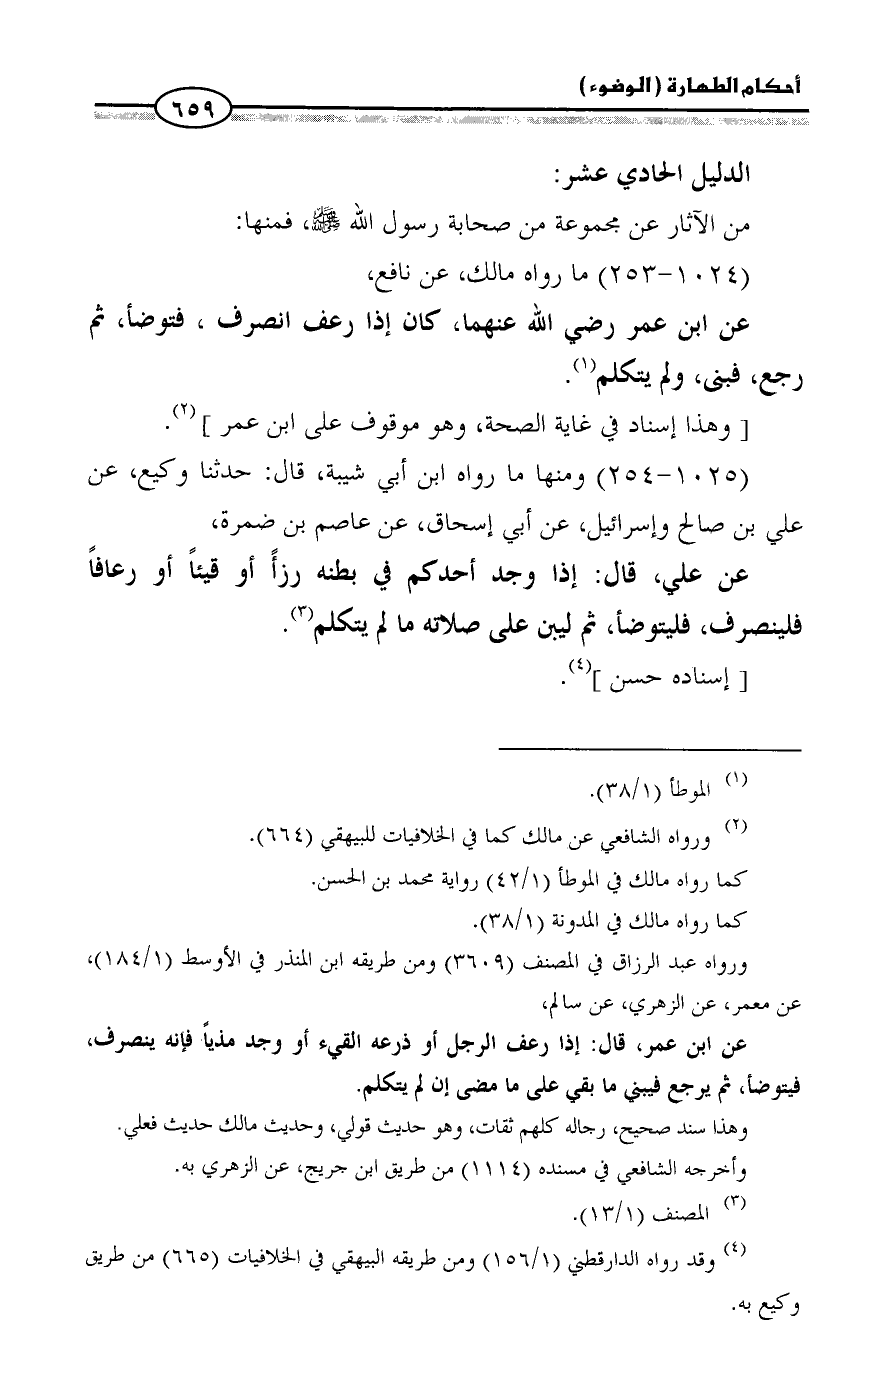 أحكام الطهارة (الوضوء)
٦٥٩
الدليل الحادي عشر:
من الآثار عن مجموعة من صحابة رسول الله ﷺ، فمنها:
(١٠٢٤-٢٥٣) ما رواه مالك، عن نافع،
عن ابن عمر رضي الله عنهما، كان إذا رعف انصرف ، فتوضأ، ثم
رجع، فبنى، ولم يتكلم(١).
[ وهذا إسناد في غاية الصحة، وهو موقوف على ابن عمر ](٢).
(١٠٢٥-٢٥٤) ومنها ما رواه ابن أبي شيبة، قال: حدثنا وكيع، عن
علي بن صالح وإسرائيل، عن أبي إسحاق، عن عاصم بن ضمرة،
عن علي، قال: إذا وجد أحدكم في بطنه رزأً أو قيئاً أو رعافاً
فلينصرف، فليتوضأ، ثم ليبن على صلاته ما لم يتكلم(٣).
[ إسناده حسن ](٤).
(١) الموطأ (٣٨/١).
(٢) ورواه الشافعي عن مالك كما في الخلافيات للبيهقي (٦٦٤).
كما رواه مالك في الموطأ (٤٢/١) رواية محمد بن الحسن.
كما رواه مالك في المدونة (٣٨/١).
ورواه عبد الرزاق في المصنف (٣٦٠٩) ومن طريقه ابن المنذر في الأوسط (١٨٤/١)،
عن معمر، عن الزهري، عن سالم،
عن ابن عمر، قال: إذا رعف الرجل أو ذرعه القيء أو وجد مذياً فإنه ينصرف،
فيتوضأ، ثم يرجع فيبني ما بقي على ما مضى إن لم يتكلم.
وهذا سند صحيح، رجاله كلهم ثقات، وهو حديث قولي، وحديث مالك حديث فعلي.
وأخرجه الشافعي في مسنده (١١١٤) من طريق ابن جريج، عن الزهري به.
(٣) المصنف (١٣/١).
(٤) وقد رواه الدارقطني (١٥٦/١) ومن طريقه البيهقي في الخلافيات (٦٦٥) من طريق
وكيع به.